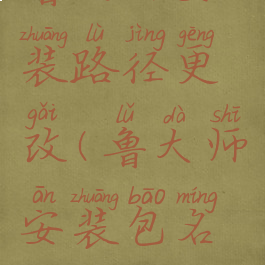 zhuāng lù jìng gēng
装路径更
gǎi lǔ dà shī
改(鲁大师
ān zhuāng bāo míng
安装包名